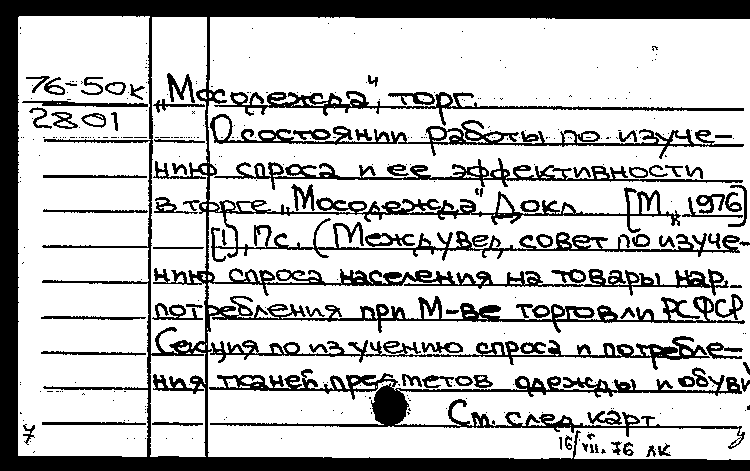 76-50к „Мосодежда", торг.
2801 О состоянии работы по изуче-
нию спроса и ее эффективности
в торге „Мосодежда". Докл. [М., 1976]
[1], 17с. (Междувед. совет по изуче-
нию спроса населения на товары нар.
потребления при М-ве торговли РСФСР
Секция по изучению спроса и потребле-
ния тканей, предметов одежды и обуви
См. след. карт.
7 16/VII. 76 лк